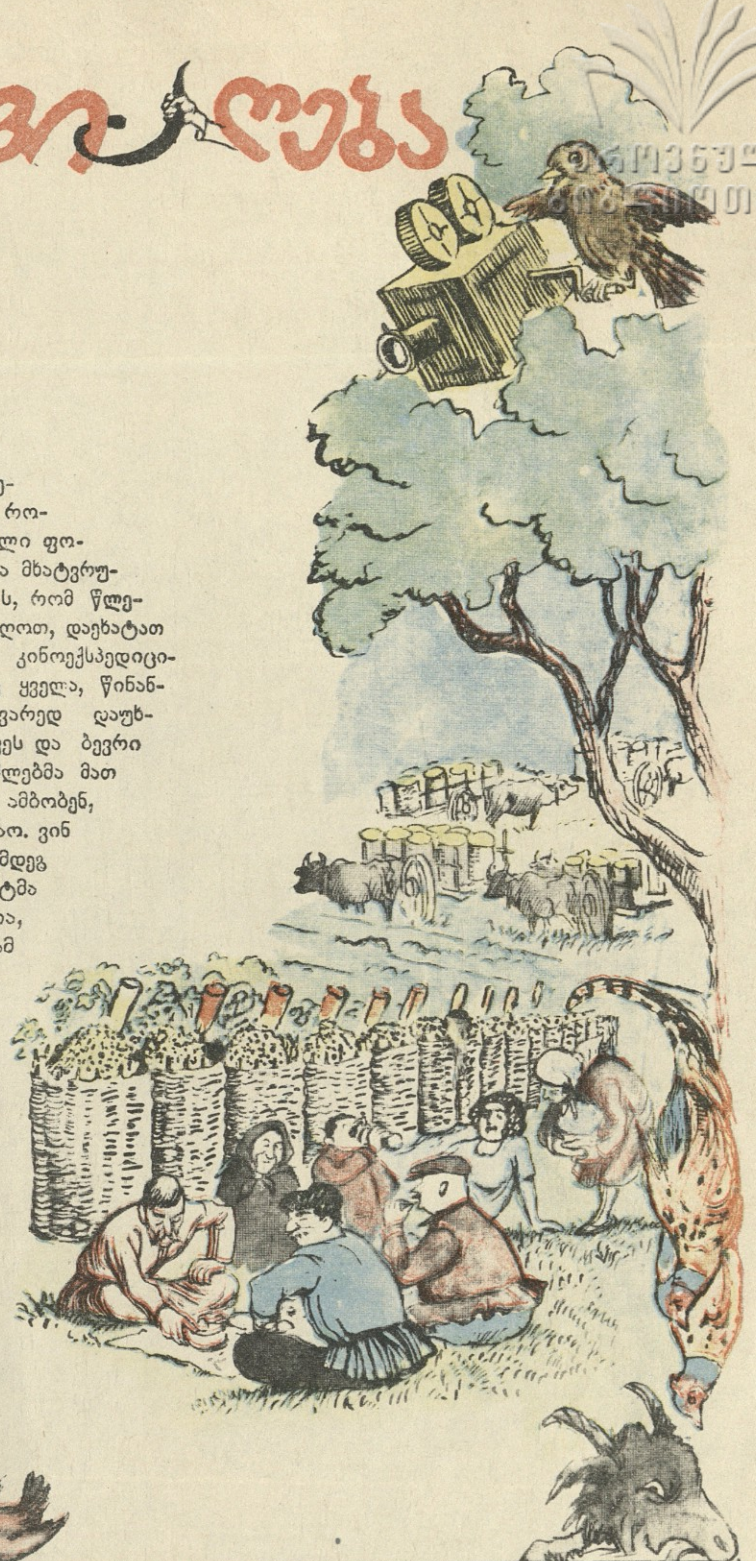 ღება
ეროვნულ
ბიბლიოთ
რო-
ლი ფო-
ა მხატვრუ-
ს, რომ წლე-
ღოთ, დაეხატათ
კინოექსპედიცი-
ყველა, წინან-
ვარედ დაუხ-
ეს და ბევრი
ლებმა მათ
ამბობენ,
აო. ვინ
მდეგ
ტმა